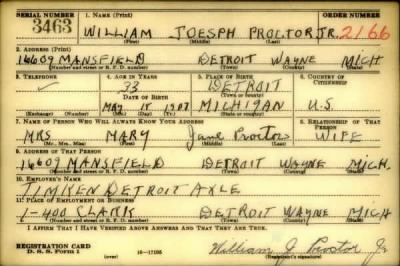 SERIAL NUMBER 1. NAME (Print) ORDER NUMBER
3463 WILLIAM JOESPH PROCTOR JR. 2166
(First) (Middle) (Last)
2. ADDRESS (Print)
16609 MANSFIELD DETROIT WAYNE MICH
(Number and street or R. F. D. number) (Town) (County) (State)
3. TELEPHONE 4. AGE IN YEARS 5. PLACE OF BIRTH 6. COUNTRY OF CITIZENSHIP
✓ 33 DETROIT
DATE OF BIRTH (Town or county)
MAY 15 1907 MICHIGAN U.S.
(Exchange) (Number) (Mo.) (Day) (Yr.) (State or country)
7. NAME OF PERSON WHO WILL ALWAYS KNOW YOUR ADDRESS 8. RELATIONSHIP OF THAT PERSON
MRS MARY Jane Proctor WIFE
(Mr., Mrs., Miss) (First) (Middle) (Last)
9. ADDRESS OF THAT PERSON
16609 MANSFIELD DETROIT WAYNE MICH.
(Number and street or R. F. D. number) (Town) (County) (State)
10. EMPLOYER'S NAME
TIMKEN DETROIT AXLE
11. PLACE OF EMPLOYMENT OR BUSINESS
1-400 CLARK DETROIT WAYNE MICH
(Number and street or R. F. D. number) (Town) (County) (State)
I AFFIRM THAT I HAVE VERIFIED ABOVE ANSWERS AND THAT THEY ARE TRUE.
REGISTRATION CARD William J Proctor Jr
D. S. S. Form 1 (over) 16-17105 (Registrant's signature)